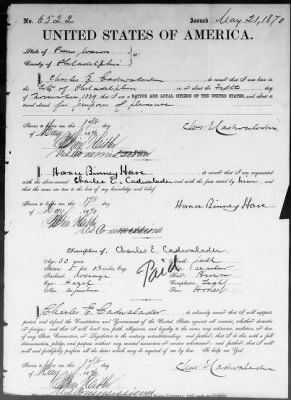 No. 6522 Issued May 21, 1870
UNITED STATES OF AMERICA.
State of Pennsylvania
County of Philadelphia
I, Charles E. Cadwalader do swear that I was born in
the City of Philadelphia on or about the day
of November 1839, that I am a NATIVE AND LOYAL CITIZEN OF THE UNITED STATES, and about to
travel abroad for purpose of pleasure
Sworn to before me this 17th
day of May 1870
Chas E Cadwalader
I, Horace Binney Hare am acquainted
with the above-named Charles E. Cadwalader and with the facts stated by him
and that the same are true to the best of my knowledge and belief.
Sworn to before me this 17th
day of May 1870
Horace Binney Hare
Description of Charles E. Cadwalader
Age: 30 years
Stature: 5 feet
Forehead: average
Eyes: Hazel
Nose:
Mouth: full
Chin:
Hair: Brown
Complexion: Light
Face:
Paid
I, Charles E. Cadwalader, do solemnly swear that I will support,
protect and defend the Constitution and Government of the United States against all enemies, whether domestic
or foreign; and that I will bear true faith, allegiance, and loyalty to the same, any ordinance, resolution, or law
of any State, Convention, or Legislature to the contrary notwithstanding; and further, that I do this with a full
determination, pledge, and purpose, without any mental reservation or evasion whatsoever; and further, that I
will well and faithfully perform all the duties which may be required of me by law. So help me God.
Sworn to before me this 17th
day of May 1870
Chas E Cadwalader